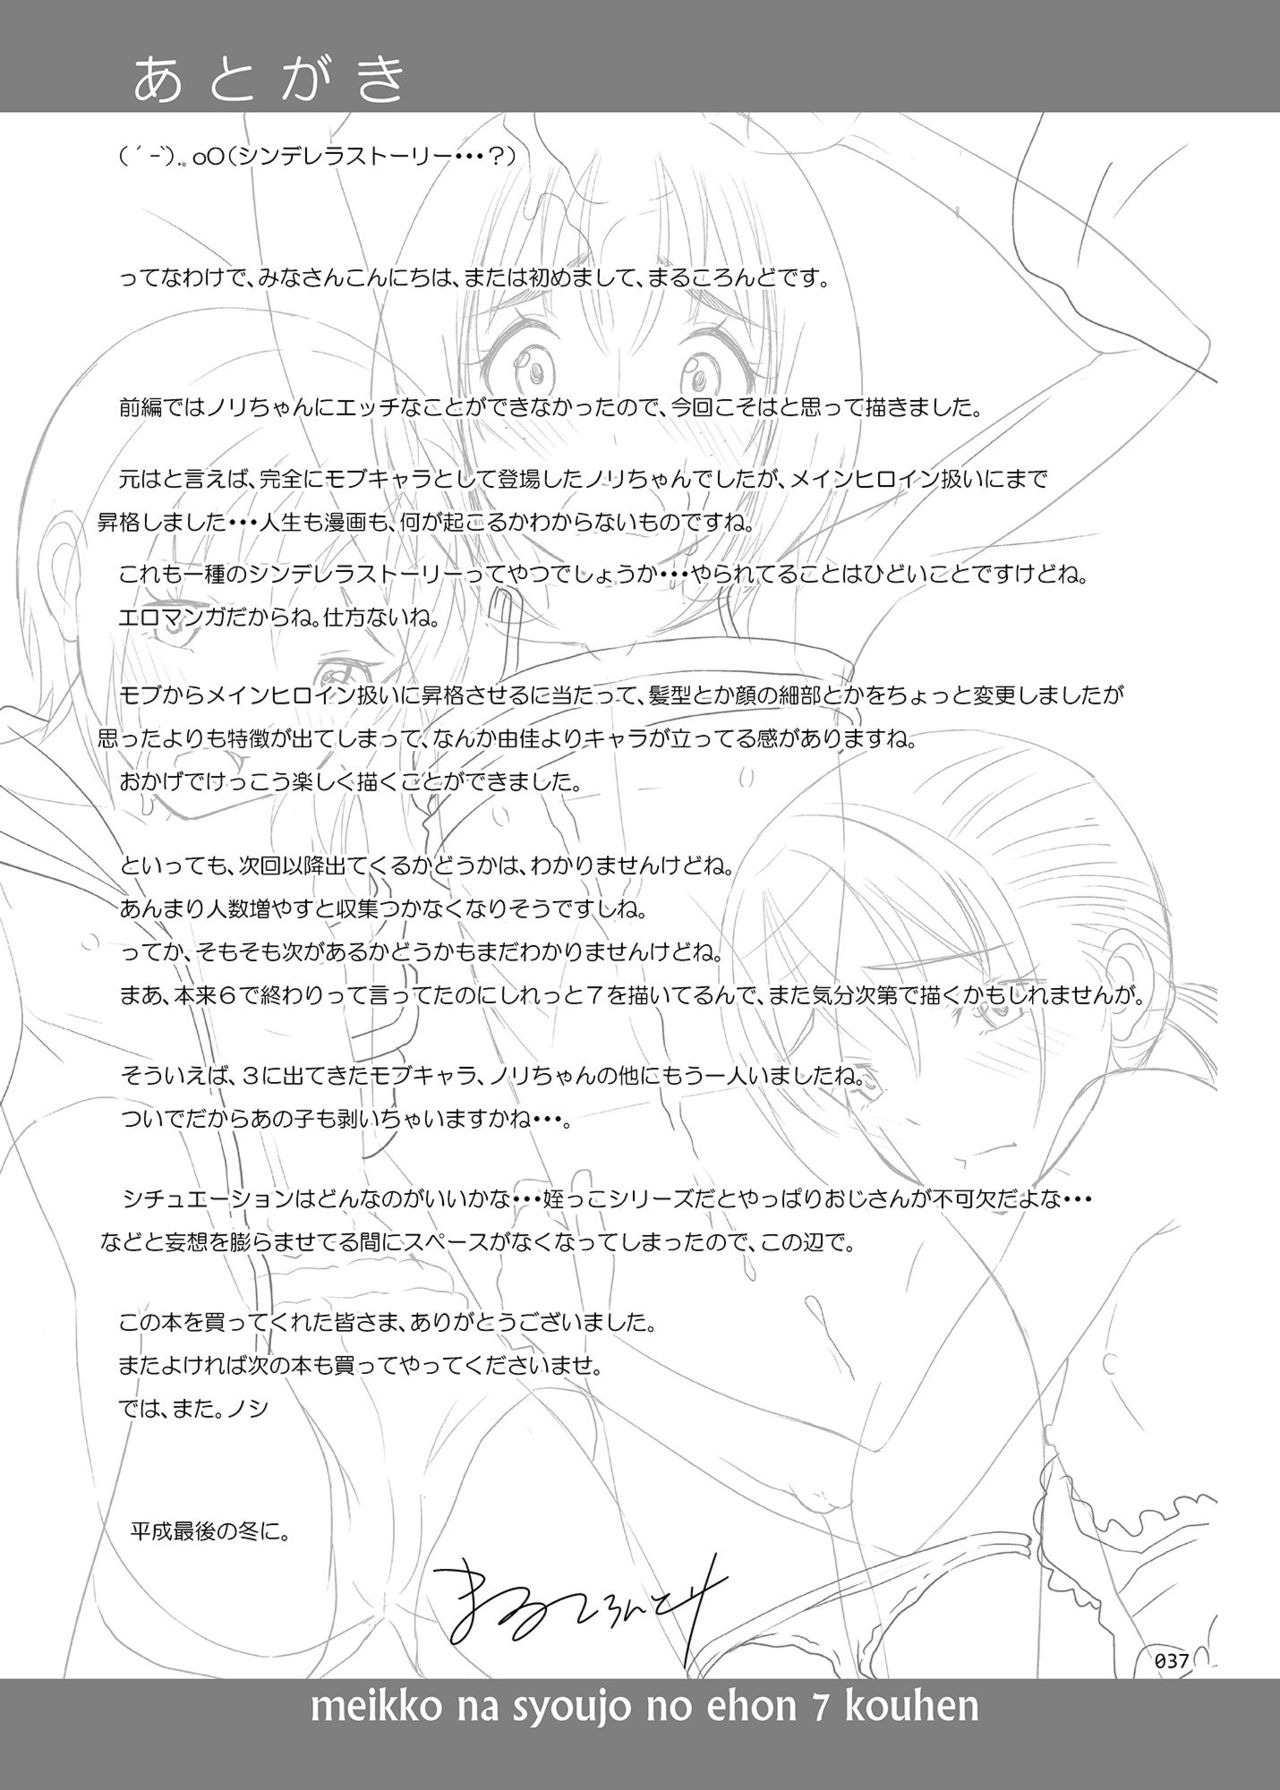 あとがき
(´-`).。oO(シンデレラストーリー・・・？)
ってなわけで、みなさんこんにちは、または初めまして、まるころんどです。
前編ではノリちゃんにエッチなことができなかったので、今回こそはと思って描きました。
元はと言えば、完全にモブキャラとして登場したノリちゃんでしたが、メインヒロイン扱いにまで
昇格しました・・・人生も漫画も、何が起こるかわからないものですね。
これも一種のシンデレラストーリーってやつでしょうか・・・やられてることはひどいことですけどね。
エロマンガだからね。仕方ないね。
モブからメインヒロイン扱いに昇格させるに当たって、髪型とか顔の細部とかをちょっと変更しましたが
思ったよりも特徴が出てしまって、なんか由佳よりキャラが立ってる感がありますね。
おかげでけっこう楽しく描くことができました。
といっても、次回以降出てくるかどうかは、わかりませんけどね。
あんまり人数増やすと収集つかなくなりそうですしね。
ってか、そもそも次があるかどうかもまだわかりませんけどね。
まあ、本来６で終わりって言ってたのにしれっと７を描いてるんで、また気分次第で描くかもしれませんが。
そういえば、３に出てきたモブキャラ、ノリちゃんの他にもう一人いましたね。
ついでだからあの子も剥いちゃいますかね・・・。
シチュエーションはどんなのがいいかな・・・姪っこシリーズだとやっぱりおじさんが不可欠だよな・・・
などと妄想を膨らませてる間にスペースがなくなってしまったので、この辺で。
この本を買ってくれた皆さま、ありがとうございました。
またよければ次の本も買ってやってくださいませ。
では、また。ノシ
平成最後の冬に。
まるころんど
037
meikko na syoujo no ehon 7 kouhen